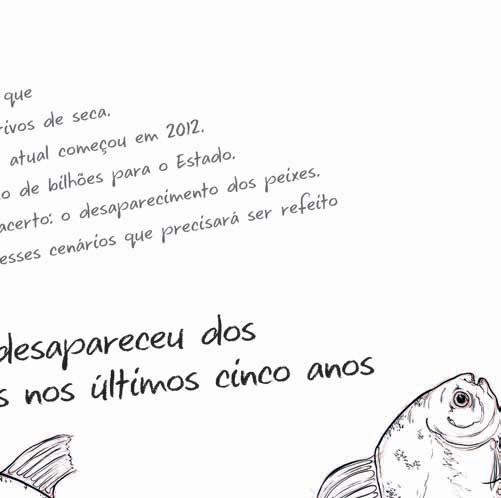 que
ivos de seca.
atual começou em 2012.
o de bilhões para o Estado.
acerto: o desaparecimento dos peixes.
esses cenários que precisará ser refeito
desapareceu dos
s nos últimos cinco anos